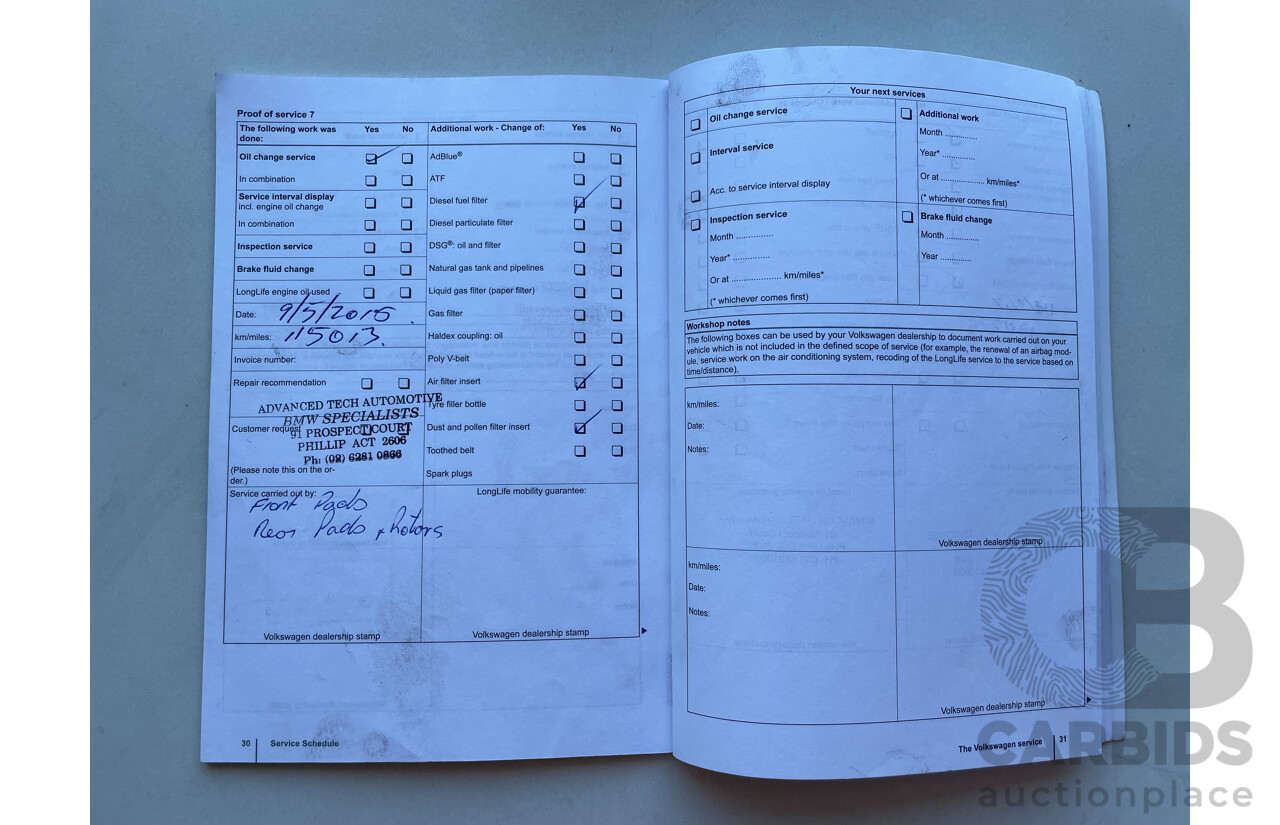 Proof of service 7
The following work was done: Yes No
Oil change service
In combination
Service interval display
incl. engine oil change
In combination
Inspection service
Brake fluid change
LongLife engine oil used
Date: 9/5/2015
km/miles: 115013.
Invoice number:
Repair recommendation
ADVANCED TECH AUTOMOTIVE
BMW SPECIALISTS
91 PROSPECT COURT
PHILLIP ACT 2606
Ph: (02) 6281 0866
Customer request
(Please note this on the or-
der.)
Service carried out by:
Front Pads
Rear Pads + Rotors
Volkswagen dealership stamp
Additional work - Change of: Yes No
AdBlue®
ATF
Diesel fuel filter
Diesel particulate filter
DSG®: oil and filter
Natural gas tank and pipelines
Liquid gas filter (paper filter)
Gas filter
Haldex coupling: oil
Poly V-belt
Air filter insert
Tyre filler bottle
Dust and pollen filter insert
Toothed belt
Spark plugs
LongLife mobility guarantee:
Volkswagen dealership stamp
30 Service Schedule
Your next services
Oil change service
Interval service
Acc. to service interval display
Inspection service
Month ..............
Year* ..............
Or at ................... km/miles*
(* whichever comes first)
Additional work
Month ............
Year* ............
Or at ................. km/miles*
(* whichever comes first)
Brake fluid change
Month ............
Year ............
Workshop notes
The following boxes can be used by your Volkswagen dealership to document work carried out on your
vehicle which is not included in the defined scope of service (for example, the renewal of an airbag mod-
ule, service work on the air conditioning system, recoding of the LongLife service to the service based on
time/distance).
km/miles:
Date:
Notes:
Volkswagen dealership stamp
km/miles:
Date:
Notes:
Volkswagen dealership stamp
The Volkswagen service 31
CB
CARBIDS
auctionplace